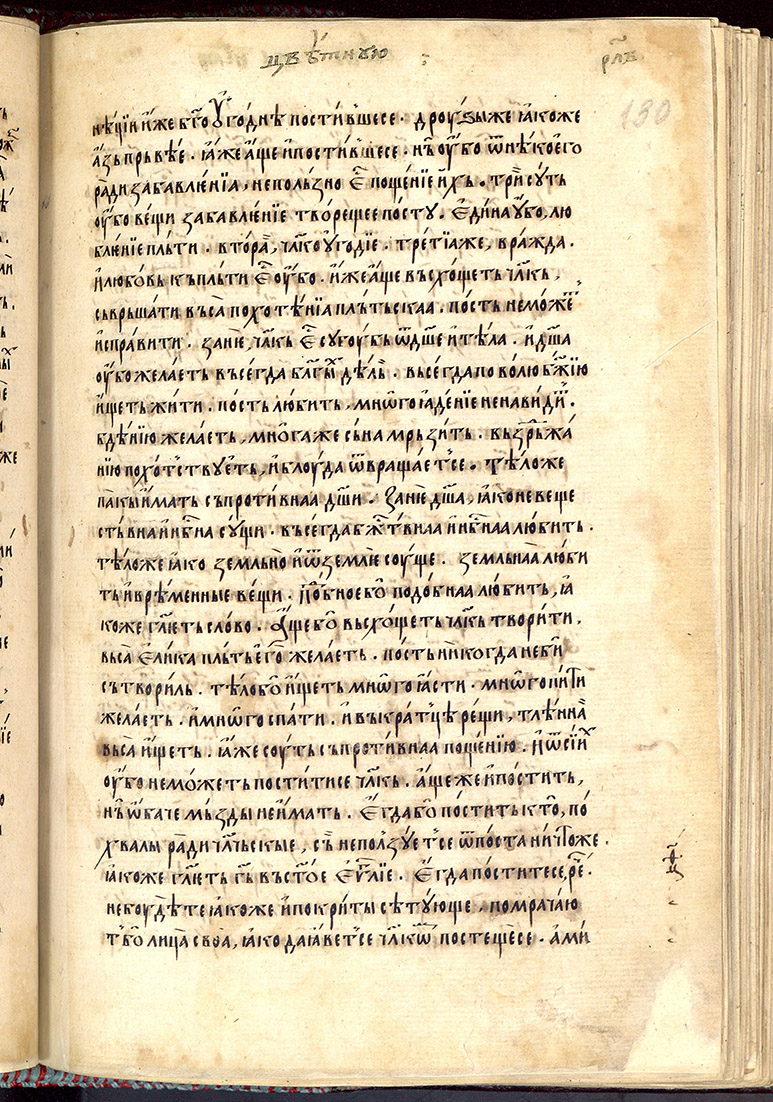 цвѣтнꙋю :
рл҃в
130
нѣцїи и҆же бг҃оу҆годнѣ постившесе · дроузыже ꙗ҆коже
а҆зь прьвѣе · ꙗ҆же а҆ще и҆постившесе · нь оу҆бо ѿнѣкоего
ради забавлѥнїа, непользно є҆с҃ пощенїе и҆хь · трїе сꙋть
оу҆бо вещи забавлѥнїе творещее постꙋ · є҆дина оу҆бо, лю
блѥнїе пльти · втораа, чл҃коу҆годїе · третїаже, вражда ·
и҆любовь кьпльти є҆с҃ оу҆бо · и҆же а҆ще вьсхощеть чл҃кь,
сьврьшати вьса похотѣнїа пльтьскаа · пость неможеть
и҆справити · занѥ, чл҃кь є҆с҃ сꙋгоубь ѿдш҃е и҆тѣла · и҆дш҃а
оу҆бо желаеть вьсегда бл҃гыхь дѣль · вьсегда поволю бж҃їю
и҆щеть жити · пость любить, мнѡго ꙗденїе ненавидить ·
бдѣнїю желаеть, многаже сьна мрьзить · вьздрьжа
нїю похотствꙋеть, и҆блоуда ѿвращаетсе · тѣложе
пакы и҆мать сьпротивнаа дш҃и · занѥ дш҃а, ꙗ҆коневеще
ствьнаа и҆нбⷭ҇на сꙋщи · вьсегда бжⷭ҇твнаа и҆нбⷭ҇наа любить ·
тѣложе ꙗ҆ко земльно и҆ѿземлѥ соуще · земльнаа люби
ть и҆врѣменные вещи · Пѡбное бо подобнаа любить, ꙗ҆
коже гл҃еть слово · А҆ще бо вьсхощеть чл҃кь творити,
вьса є҆лика пльть є҆го желаеть · пость никогда неби
сьтвориль · тѣло бо и҆щеть мнѡго ꙗсти · мнѡго пити
желаеть · и҆мнѡго спати · и҆ вькратцѣ рещи, тлѣннаа
вьса и҆щеть · ꙗ҆же соуть сьпротивнаа пощенїю · и҆ѿсїихь
оу҆бо неможеть поститисе чл҃кь · а҆ще же и҆постить,
нь ѡ҆баче мьзды неи҆мать · Є҆гда бо постить кто, по
хвалы ради чл҃чьскые, сь неползꙋетсе ѿпоста ничтоже ·
ꙗ҆коже гл҃еть гь҃ вьст҃ое є҆ѵⷢ҇лїе · Є҆гда поститесе, реⷱ҇ ·
небоудѣте ꙗ҆коже и҆покрити сѣтꙋюще · помрачаю
т бо лица своа, ꙗ҆ко да ꙗветсе чл҃кѡмь постещесе · а҆ми